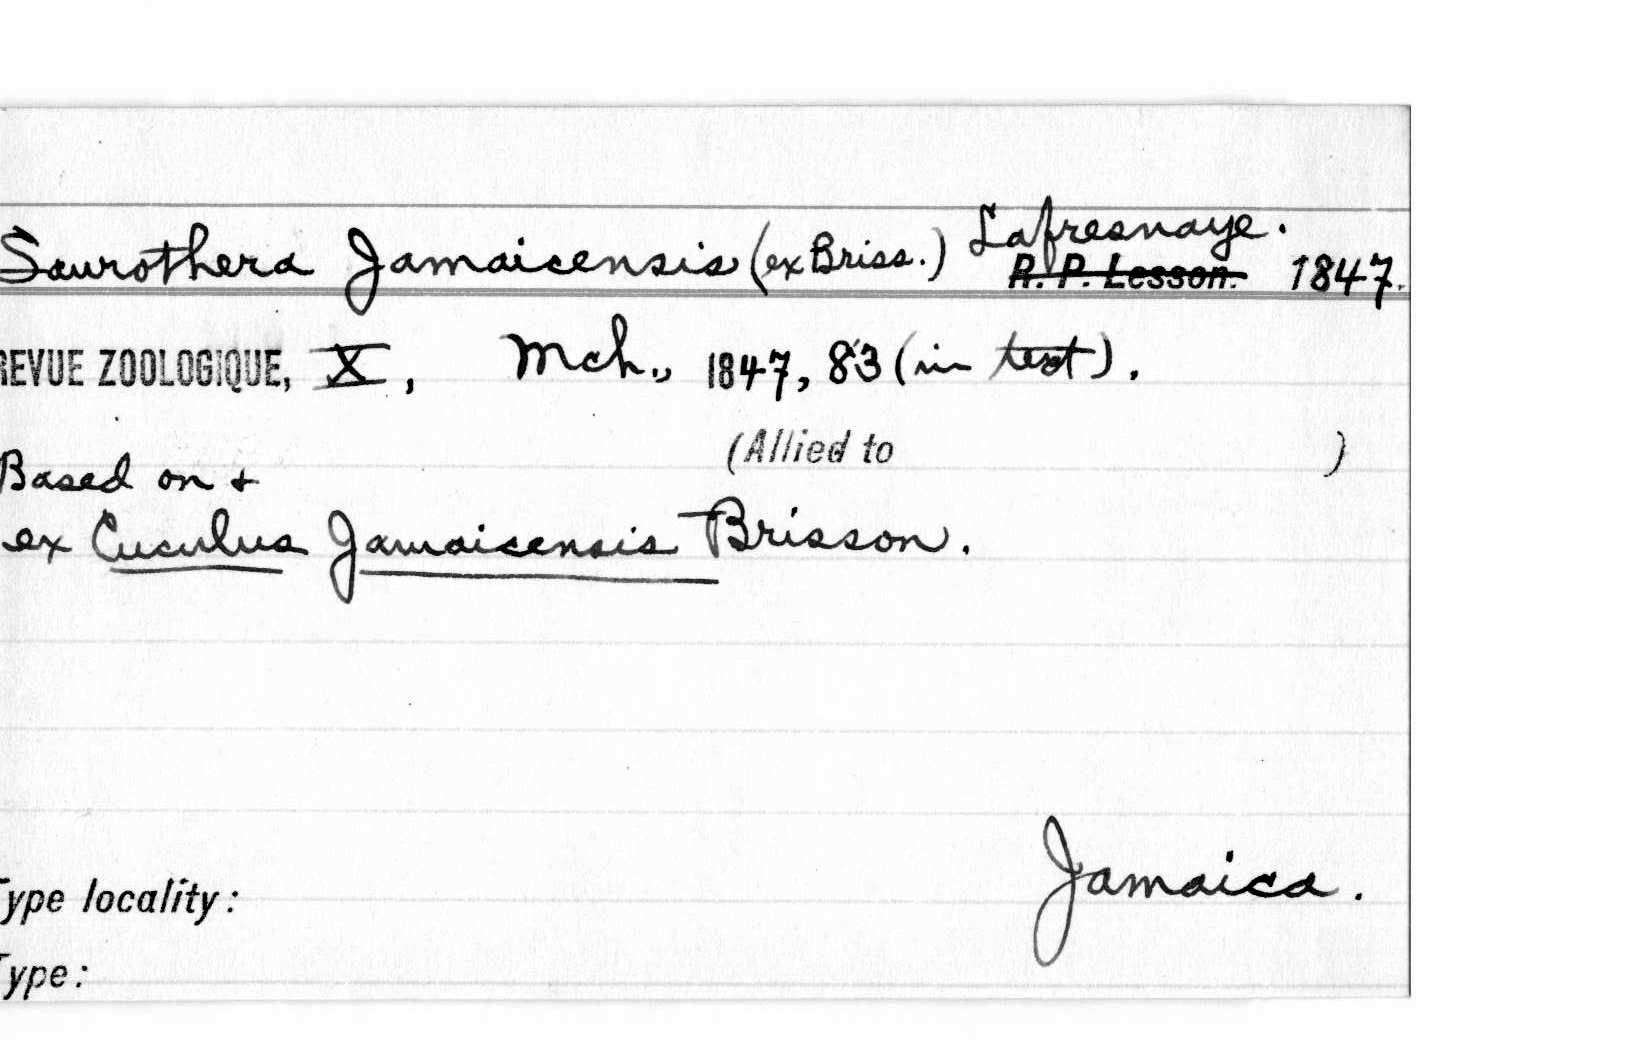 Saurothera Jamaicensis (ex Briss.) Lafresnaye.
R. P. Lesson. 1847.
REVUE ZOOLOGIQUE, X, Mch., 1847, 83 (in text).
(Allied to )
Based on &
ex Cuculus Jamaicensis Brisson.
Jamaica.
Type locality:
Type: